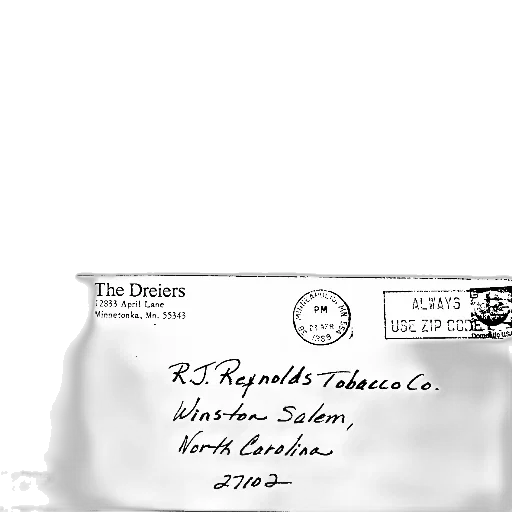 The Dreiers
12833 April Lane
Minnetonka, Mn. 55343
MINNEAPOLIS, MN 554
PM
1988
ALWAYS
USE ZIP CODE
R.J. Reynolds Tobacco Co.
Winston Salem,
North Carolina
27102